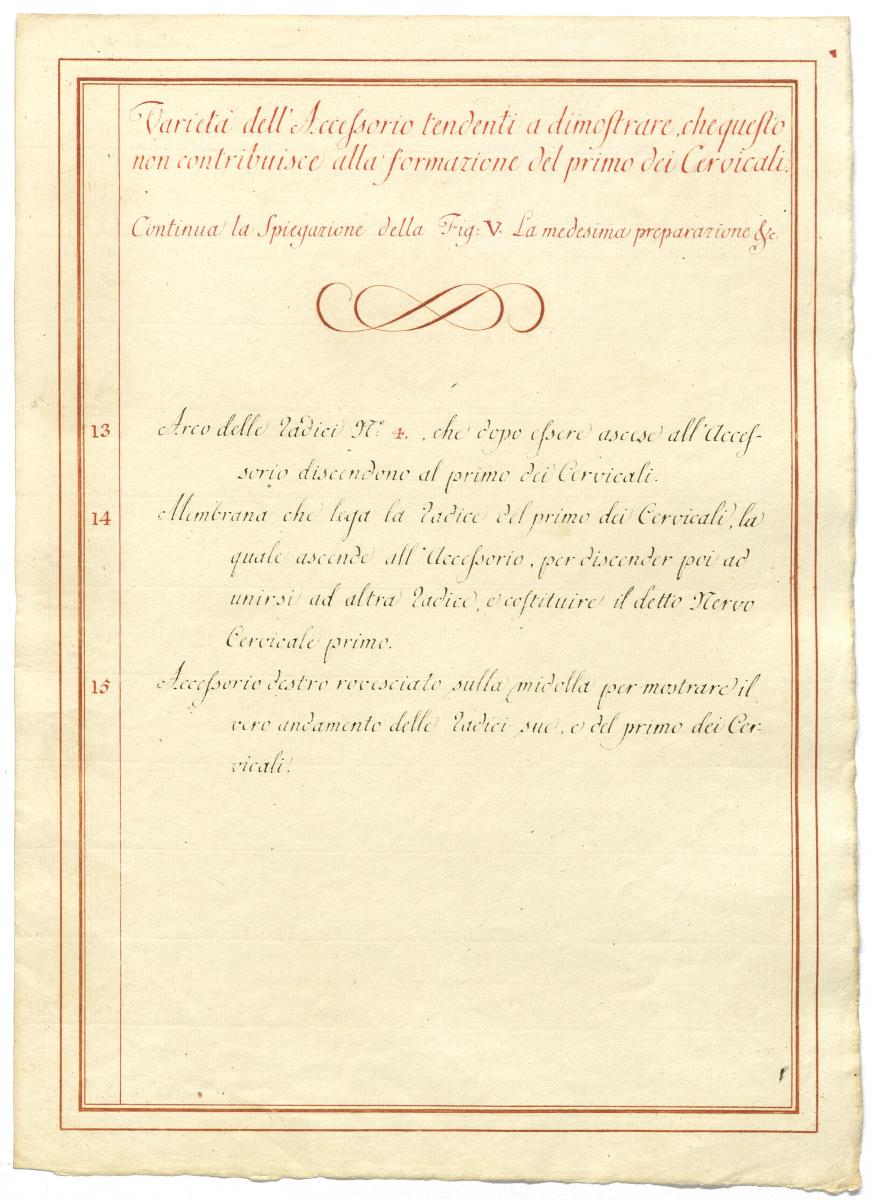 Varietà dell'Accessorio tendenti a dimostrare, che questo
non contribuisce alla formazione del primo dei Cervicali.
Continua la Spiegazione della Fig: V. La medesima preparazione &c
13 Arco delle radici N.° 4. , che dopo essere ascese all'Acces-
sorio discendono al primo dei Cervicali.
14 Membrana che lega la radice del primo dei Cervicali, la
quale ascende all'Accessorio, per discender poi ad
unirsi ad altra radice, e costituire il detto Nervo
Cervicale primo.
15 Accessorio destro rovesciato sulla midolla per mostrare il
vero andamento delle radici sue, e del primo dei Cer-
vicali.